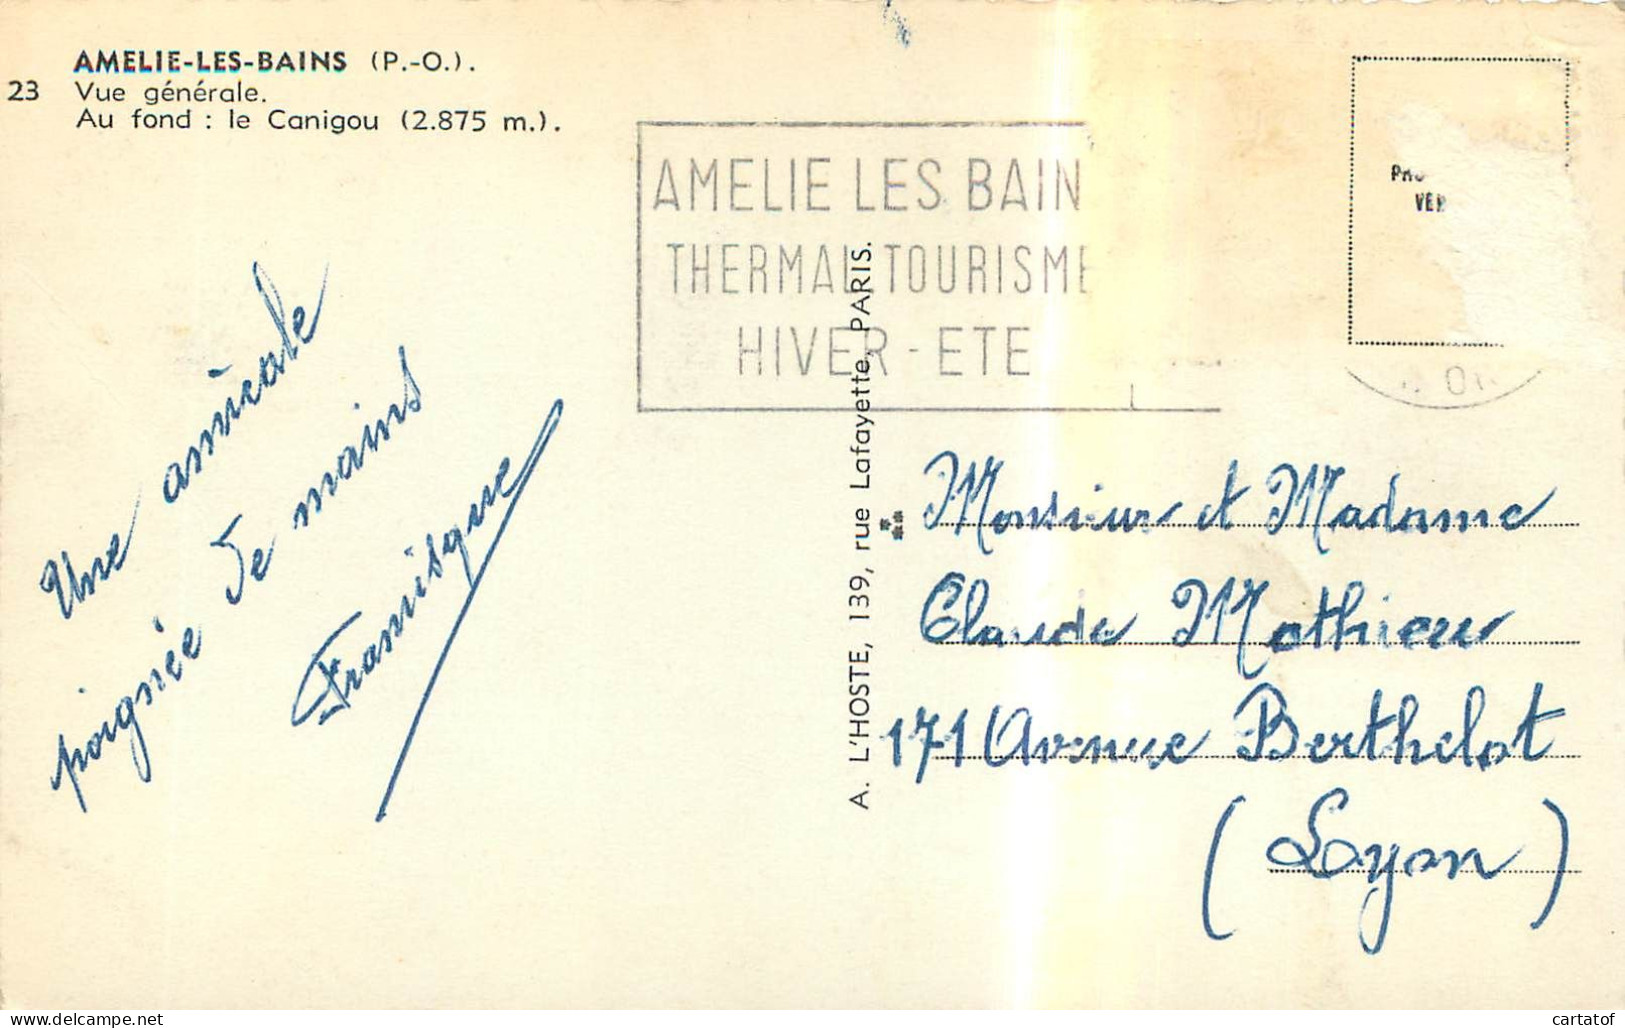 AMELIE-LES-BAINS (P.-O.).
23 Vue générale.
Au fond : le Canigou (2.875 m.).
AMELIE LES BAIN
THERMAL TOURISME
HIVER - ETE
VER
Une amicale
poignée de mains
Francisque
A. L'HOSTE, 139, rue Lafayette, PARIS.
Monsieur et Madame
Claude Mathieu
171 Avenue Berthelot
(Lyon)
delcampe.net
cartatof